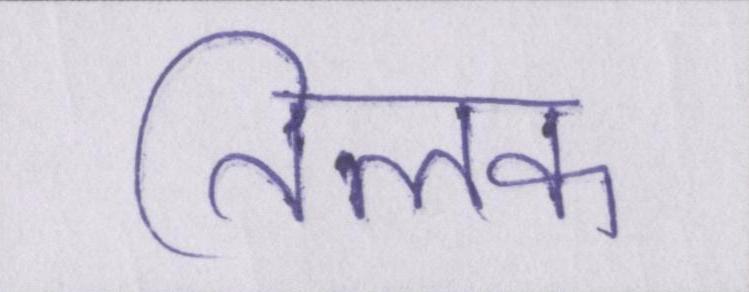 तिलक